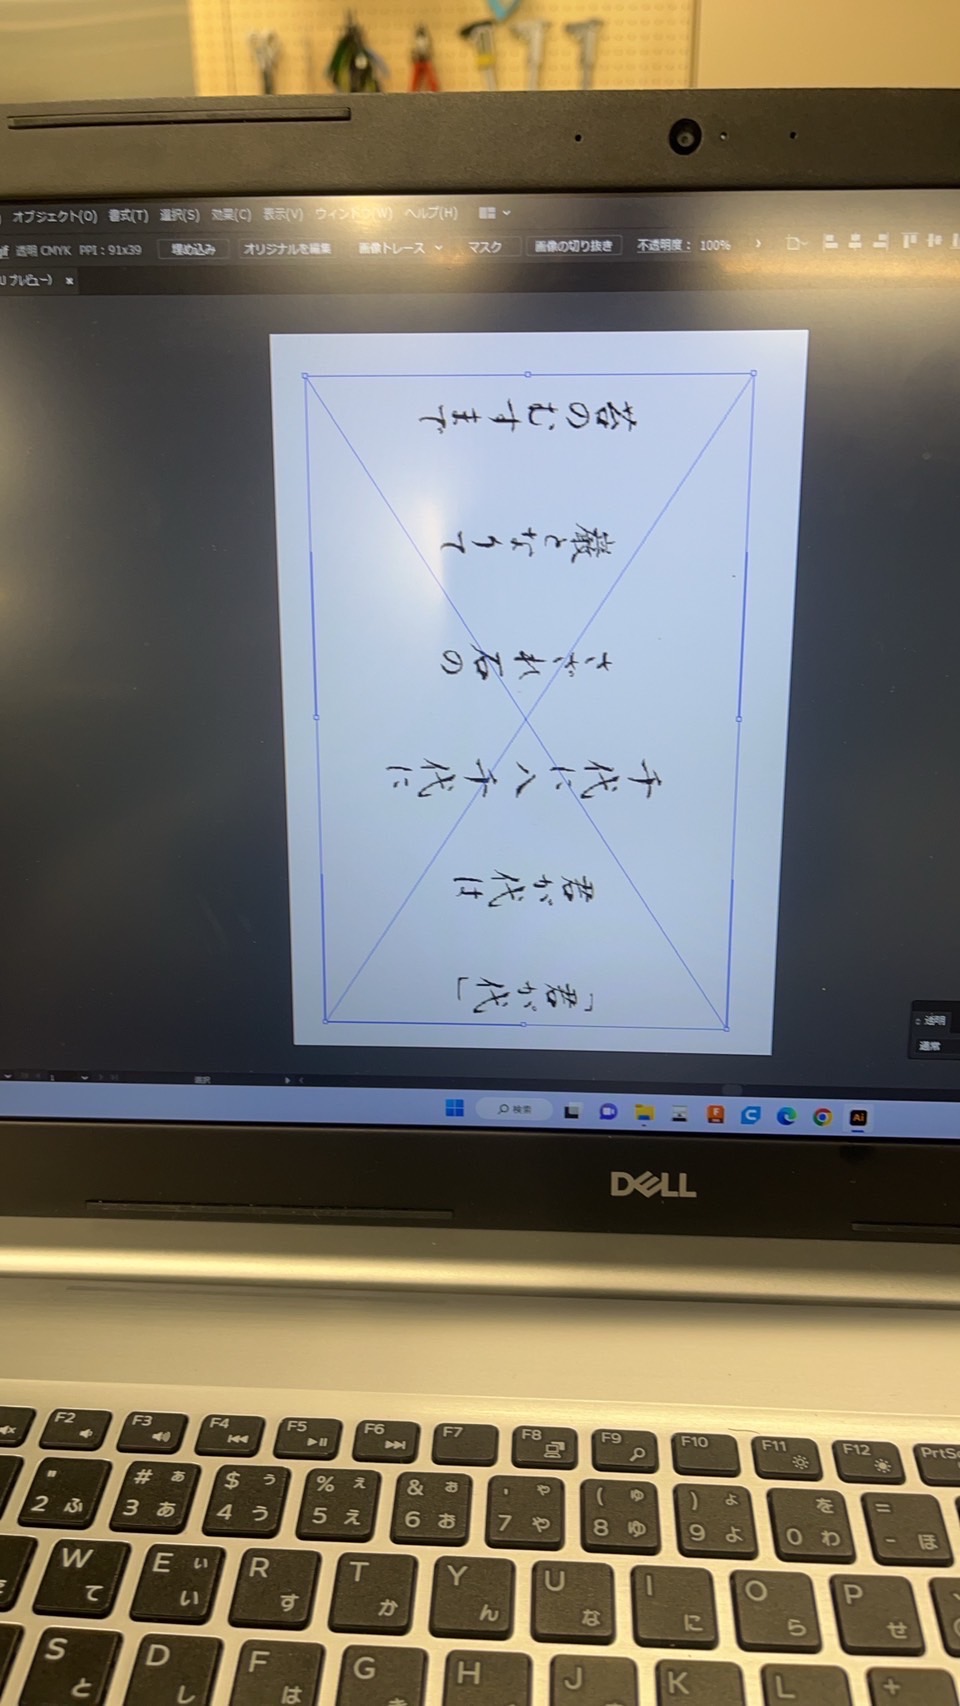 オブジェクト(O) 書式(T) 選択(S) 効果(C) 表示(V) ウィンドウ(W) ヘルプ(H)
透明 CMYK PPI : 91x39 埋め込み オリジナルを編集 画像トレース マスク 画像の切り抜き 不透明度 : 100%
プレビュー)
「君が代」
君が代は
千代に八千代に
さざれ石の
巌となりて
苔のむすまで
透明
通常
1
選択
検索
Ai
DELL
F2 F3 F4 F5 F6 F7 F8 F9 F10 F11 F12 PrtSc
" 2 ふ
# ぁ 3 あ
$ ぅ 4 う
% ぇ 5 え
& ぉ 6 お
' ゃ 7 や
( ゅ 8 ゆ
) ょ 9 よ
を 0 わ
= - ほ
W て
E ぃ い
R す
T か
Y ん
U な
I に
O ら
P せ
S と
D し
F は
G き
H
J
K
L
+